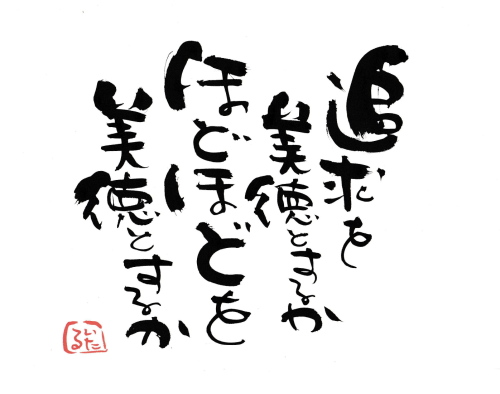 追求を
美徳とするか
ほどほどを
美徳とするか